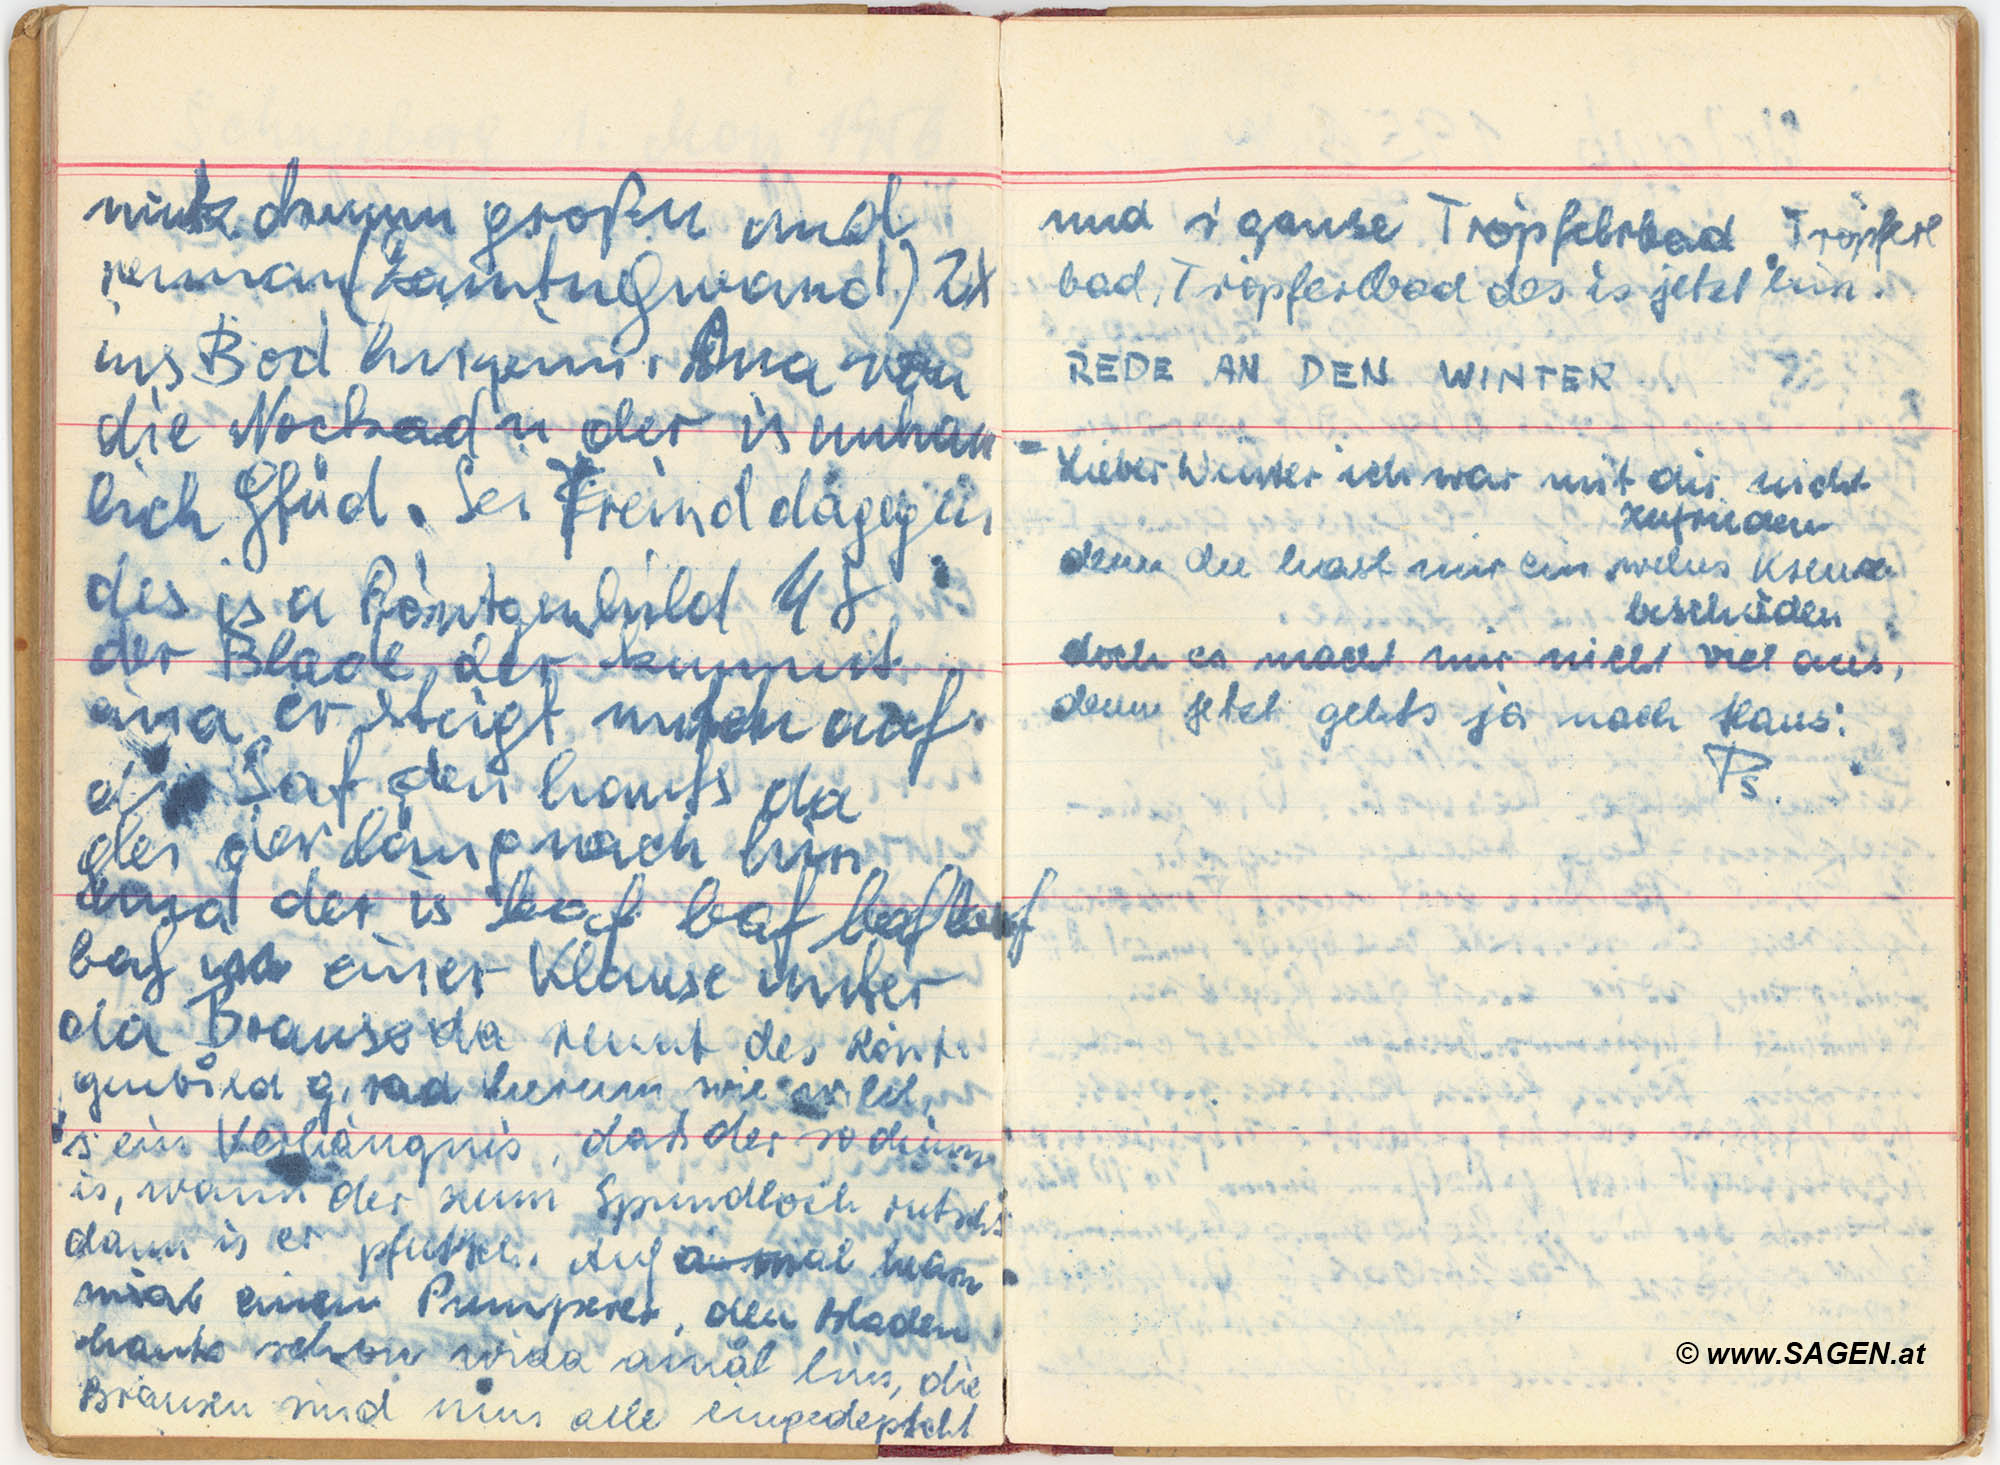 drumm großen und
ins Bod
die Nockad'n der is unham
lich Gfüd. Sei Freind dagegen
des is a Röntgenbild 48
der Blade, der kummt
ana er steigt auf
d' Saf den hauts da
der längnach hin
und der is baf baf baf baf
baf einer Klause unter
der Brause da rennt des Rönt-
genbild g'rad herum wie wild,
's ein Verhängnis, daß der so dünn
is, wann der zum Spundloch rutscht
dann is er pfutsch. Auf amal hearn
mia einen Pumperer, den Bladen
hauts schon wida amål hin, die
Brausen sind nun alle eingedepscht
und s'ganze Tröpferlbad Tröpferl
bad, Tröpferlbad des is jetzt hin.
REDE AN DEN WINTER
Lieber Winter ich war mit dir nicht
zufrieden
denn du hast mir ein wehes Kreuz
beschieden
doch es macht mir nicht viel aus,
denn jetzt gehts ja nach Haus!
Ps.
© www.SAGEN.at